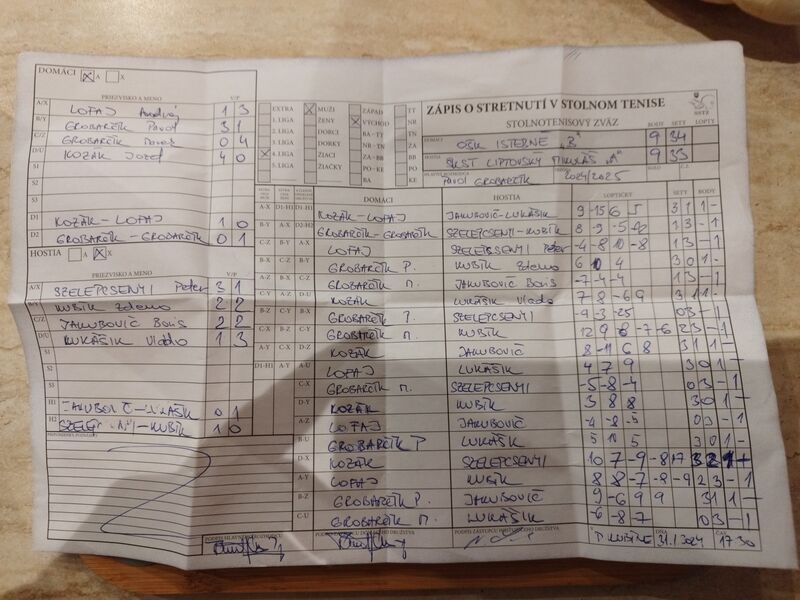 DOMÁCI ☒ A ☐ X
PRIEZVISKO A MENO V/P
A/X LOFAJ Andrej 1 3
B/Y GROBARČÍK Pavol 3 1
C/Z GROBARČÍK 0 4
D/U KOZÁK Jozef 4 0
S1
S2
S3
D1 KOZÁK-LOFAJ 1 0
D2 GROBARČÍK-GROBARČÍK 0 1
HOSTIA ☐ A ☒ X
PRIEZVISKO A MENO V/P
A/X SZELEPCSENYI Peter 3 1
B/Y KUBÍK Zdeno 2 2
C/Z JAKUBOVIČ Boris 2 2
D/U LUKÁŠIK Vlado 1 3
S1
S2
S3
H1 JAKUBOVIČ-LUKÁŠIK 0 1
H2 -KUBÍK 1 0
EXTRA
1. LIGA
2. LIGA
3. LIGA
☒ 4. LIGA
5. LIGA
☒ MUŽI
ŽENY
DORCI
DORKY
ŽIACI
ŽIAČKY
ZÁPAD
☒ VÝCHOD
BA-TT
NR-TN
ZA-BB
PO-KE
BA
TT
NR
TN
ZA
BB
PO
KE
ZÁPIS O STRETNUTÍ V STOLNOM TENISE
STOLNOTENISOVÝ ZVÄZ
SSTZ
BODY SETY LOPTY
DOMÁCI OŠK ISTEBNÉ „B" 9 34
HOSTIA ŠKST LIPTOVSKÝ MIKULÁŠ „A" 9 33
PAVOL GROBARČÍK 2024/2025
DOMÁCI HOSTIA LOPTIČKY SETY BODY
KOZÁK-LOFAJ JAKUBOVIČ-LUKÁŠIK 9 -15 6 5 3 1 1 -
GROBARČÍK-GROBARČÍK SZELEPCSENYI-KUBÍK 8 -9 -5 1 3 - 1
LOFAJ SZELEPCSENYI Peter -4 -8 10 -8 1 3 - 1
GROBARČÍK P. KUBÍK Zdeno 6 10 4 3 0 1
GROBARČÍK M. JAKUBOVIČ Boris -7 -4 -4 1 3 - 1
KOZÁK LUKÁŠIK Vlado 7 8 -6 9 3 1 1 -
GROBARČÍK P. SZELEPCSENYI -9 -3 0 3 - 1
GROBARČÍK M. KUBÍK 12 9 8 -7 -6 2 3 - 1
KOZÁK JAKUBOVIČ 8 -11 6 8 3 1 1 -
LOFAJ LUKÁŠIK 4 7 9 3 0 1 -
GROBARČÍK M. SZELEPCSENYI -5 -8 -4 0 3 - 1
KOZÁK KUBÍK 3 8 8 3 0 1 -
LOFAJ JAKUBOVIČ -4 -8 -5 0 3 - 1
GROBARČÍK P LUKÁŠIK 5 5 3 0 1 -
KOZÁK SZELEPCSENYI 10 7 -9 -8 17 3 2 1 -
LOFAJ KUBÍK 8 8 -7 -8 -9 2 3 - 1
GROBARČÍK P. JAKUBOVIČ 9 -6 9 9 3 1 1 -
GROBARČÍK M. LUKÁŠIK -6 -8 -7 0 3 - 1
DŇA 31.1.2024 ČAS 17 30